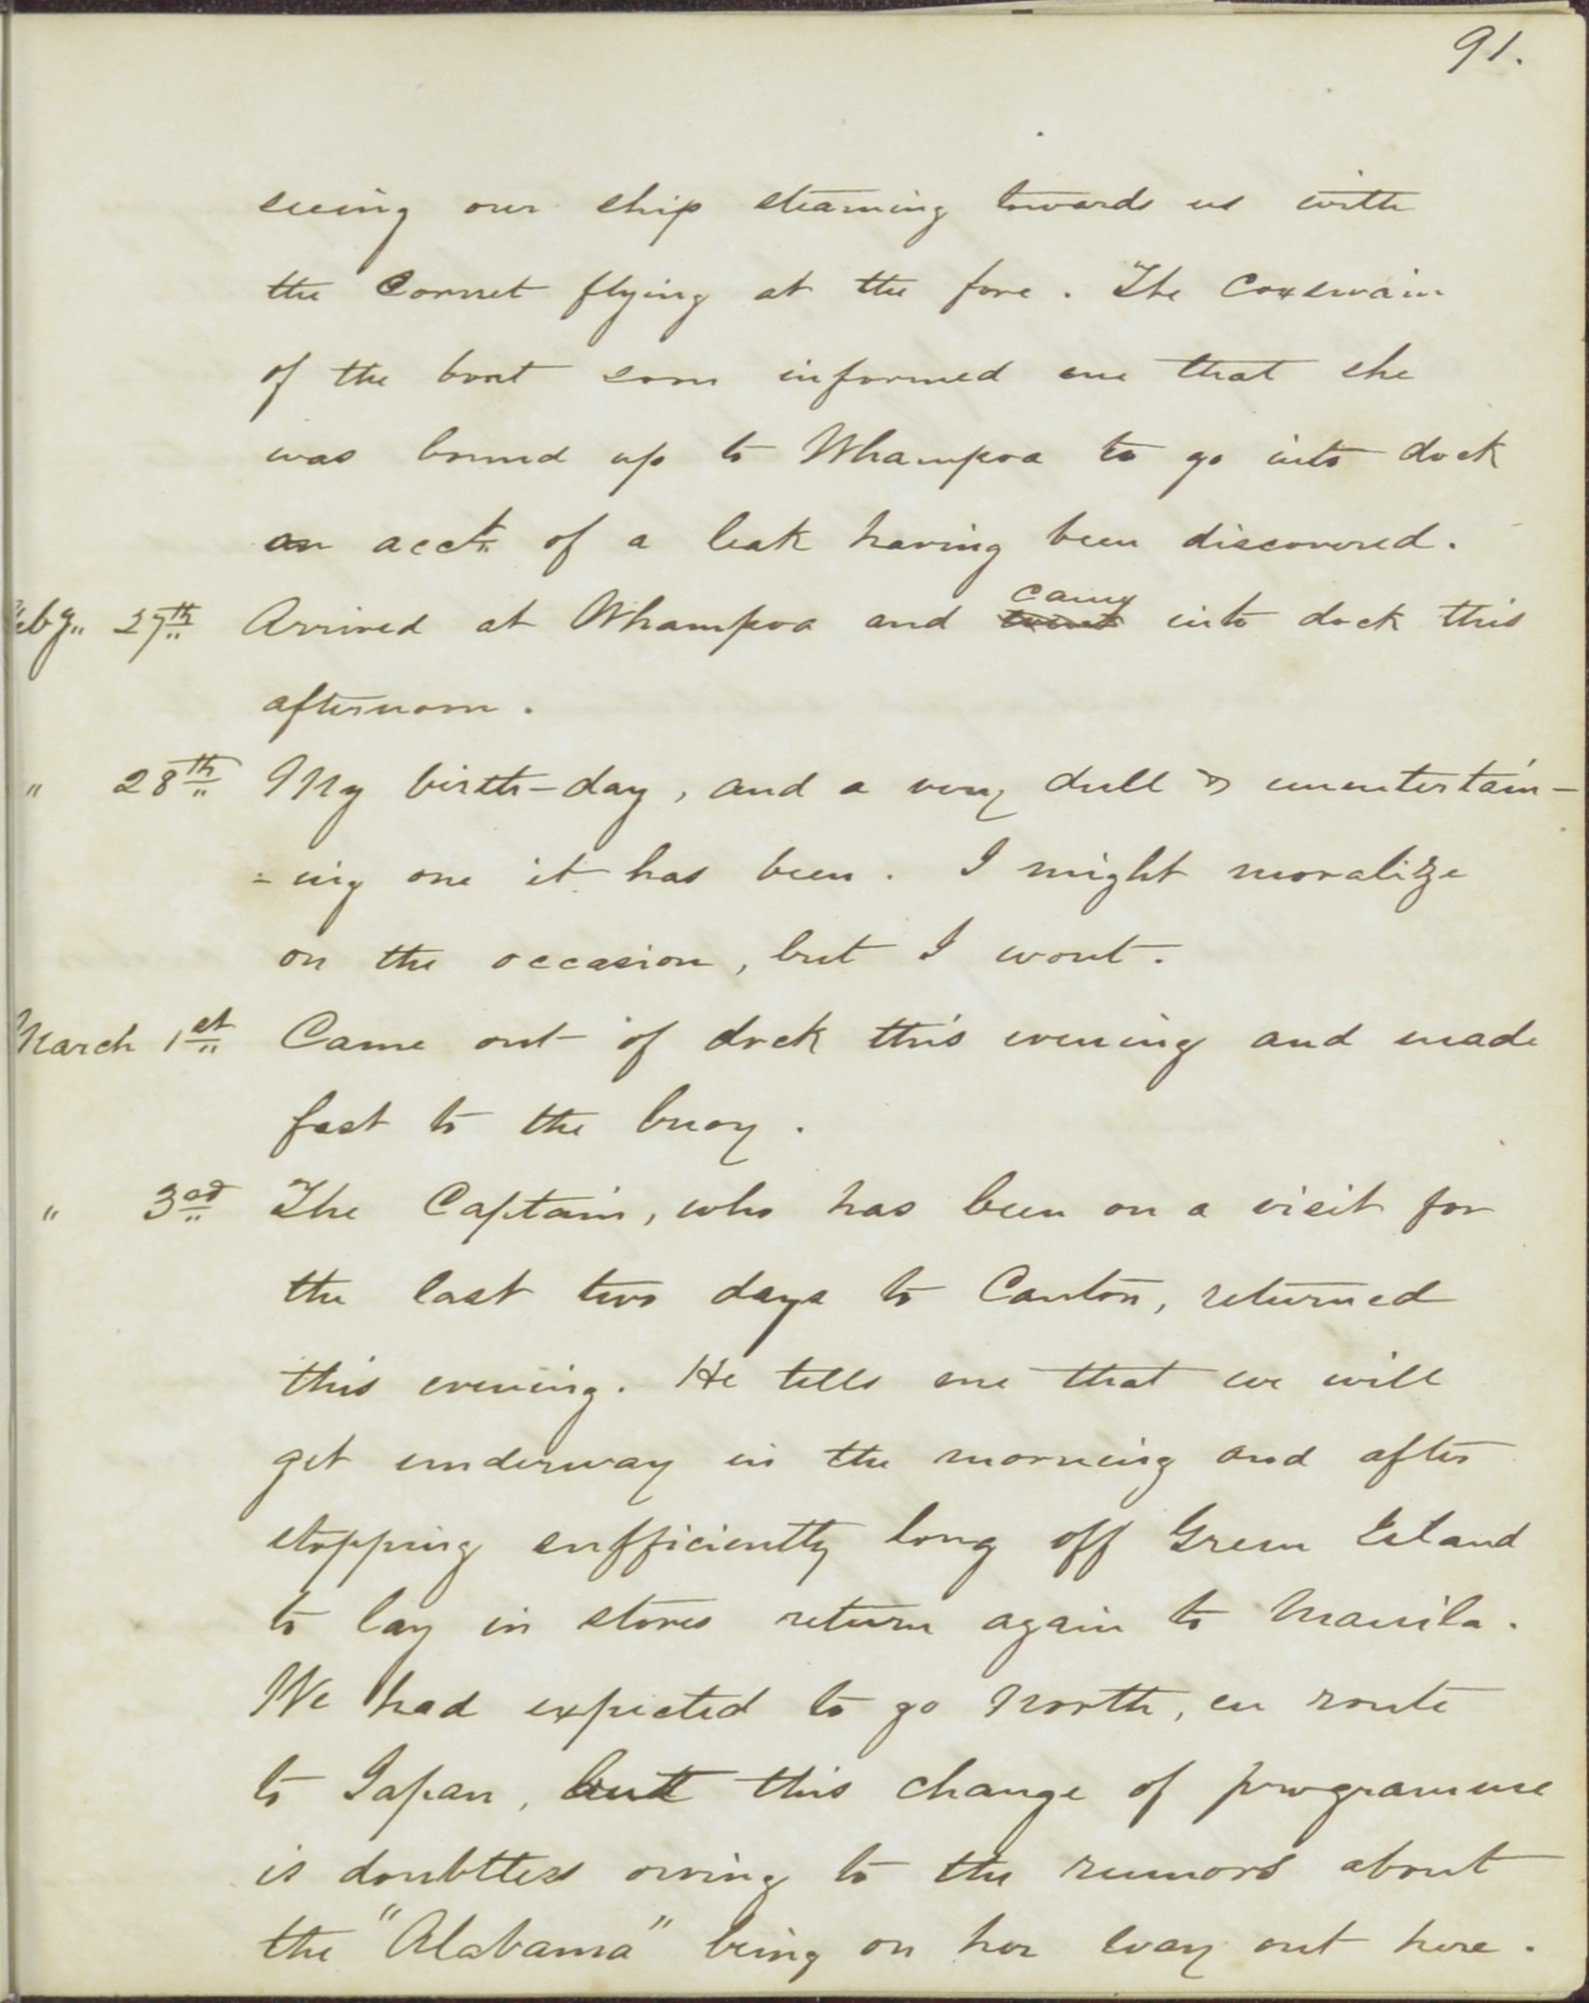 91.
seeing our ship steaming towards us with
the Cornet flying at the fore. The Coxswain
of the boat soon informed me that she
was bound up to Whampoa to go into dock
on acct. of a leak having been discovered.
Feby. 27th Arrived at Whampoa and went came into dock this
afternoon.
" 28th My birth-day, and a very dull & unentertain-
-ing one it has been. I might moralize
on the occasion, but I wont.
March 1st Came out of dock this evening and made
fast to the buoy.
" 3rd The Captain, who has been on a visit for
the last two days to Canton, returned
this evening. He tells me that we will
get underway in the morning and after
stopping sufficiently long off Green Island
to lay in stores return again to Manila.
We had expected to go North, en route
to Japan, but this change of programme
is doubtless owing to the rumors about
the "Alabama" being on her way out here.